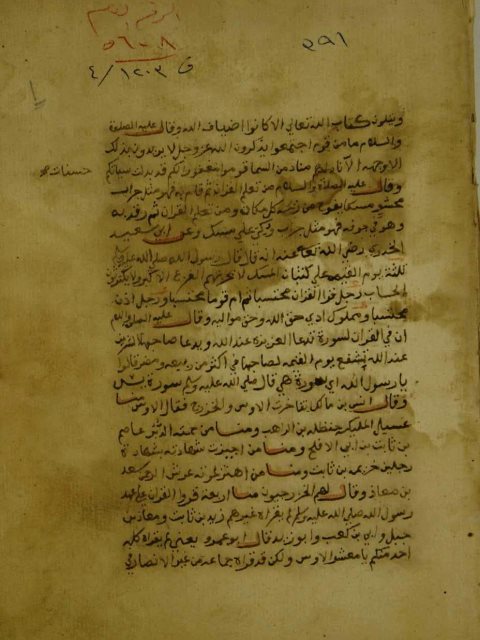 الرقم العام
٥٦٠٨
٣٩١
ق ٤/١٢٠٣
ويتلون كتاب الله تعالى الا كانوا اضياف الله وقال عليه الصلوة
والسلام ما من قوم اجتمعوا يذكرون الله عز وجل لا يريدون بذلك
الا وجهه الا ناداهم مناد من السما قوموا مغفورا لكم قد بدلت سياتكم
حسنات صح
وقال عليه الصلوة والسلام من تعلم القران ثم قام به فهو مثل جراب
محشو مسكا يفوح من ريحه كل مكان ومن تعلم القران ثم رقد به
وهو في جوفه فهو مثل جراب وكي على مسك وعن ابي سعيد
الخدري رضي الله تعالى عنه انه قال قال رسول الله صلى الله عليه وسلم
ثلثة يوم القيمة على كثبان المسك لا يحزنهم الفزع الاكبر ولا يكترثون
الحساب رجل قرا القران محتسبا ثم ام قوما محتسبا ورجل اذن
محتسبا ومملوك ادي حق الله وحق مواليه وقال عليه الصلوة والسلام
ان في القران لسورة تدعا العزيزة عند الله ويدعا صاحبها الشريف
عند الله تشفع يوم القيمة لصاحبها في اكثر من ربيعة ومضر قالوا
يا رسول الله اي سورة هي قال صلى الله عليه وسلم سورة يس
وقال انس بن مالك تفاخرت الاوس والخزرج فقال الاوس منا
غسيل الملائكة حنظلة بن الراهب ومنا من حمته الدبر عاصم
بن ثابت بن ابي الافلح ومنا من اجيزت شهادته بشهادة
رجلين خزيمة بن ثابت ومنا من اهتز لموته عرش الرحمن سعد
بن معاذ وقال لهم الخزرجيون منا اربعة قروا القران على عهد
رسول الله صلى الله عليه وسلم لم يقراه غيرهم زيد بن ثابت ومعاذ بن
جبل وابي بن كعب وابو زيد قال ابو عمرو يعني لم يقراه كله
احد منكم يا معشر الاوس ولكن قد قراه جماعة من غير الانصار في